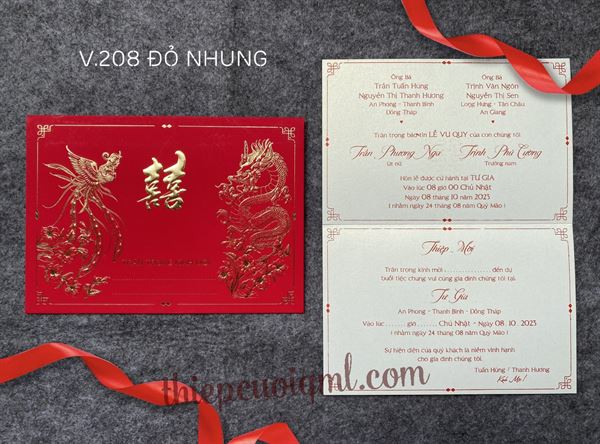 V.208 ĐỎ NHUNG
囍
TRÂN TRỌNG KÍNH MỜI
Ông Bà
Trần Tuấn Hùng
Nguyễn Thị Thanh Hương
An Phong - Thanh Bình
Đồng Tháp
Ông Bà
Trịnh Văn Ngôn
Nguyễn Thị Sen
Long Hưng - Tân Châu
An Giang
Trân trọng báo tin LỄ VU QUY của con chúng tôi
Trần Phương Ngư
Út nữ
Trịnh Phú Cường
Trưởng nam
Hôn lễ được cử hành tại TƯ GIA
Vào lúc 08 giờ 00 Chủ Nhật
Ngày 08 tháng 10 năm 2023
( nhằm ngày 24 tháng 08 năm Quý Mão )
Thiệp Mời
Trân trọng kính mời . . . . . . . . . . . . . đến dự
buổi tiệc chung vui cùng gia đình chúng tôi tại.
Tư Gia
An Phong - Thanh Bình - Đồng Tháp
Vào lúc ....... giờ....... Chủ Nhật - Ngày 08 . 10 . 2023
( nhằm ngày 24 tháng 08 năm Quý Mão )
Sự hiện diện của quý khách là niềm vinh hạnh
cho gia đình chúng tôi.
Tuấn Hùng / Thanh Hương
Kính Mời !
thiepcuoiqml.com